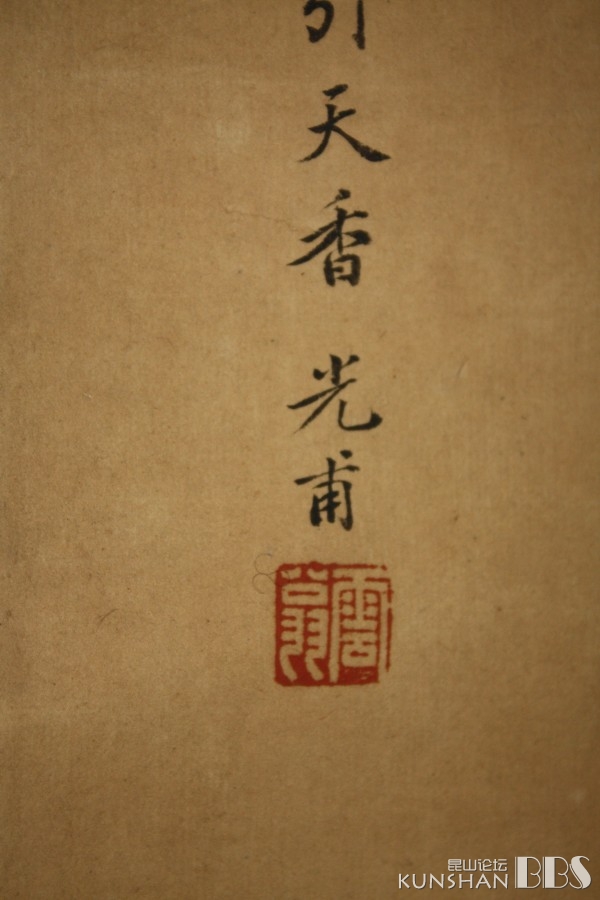 引天香 光甫
雲翁
昆山论坛
KUNSHAN BBS